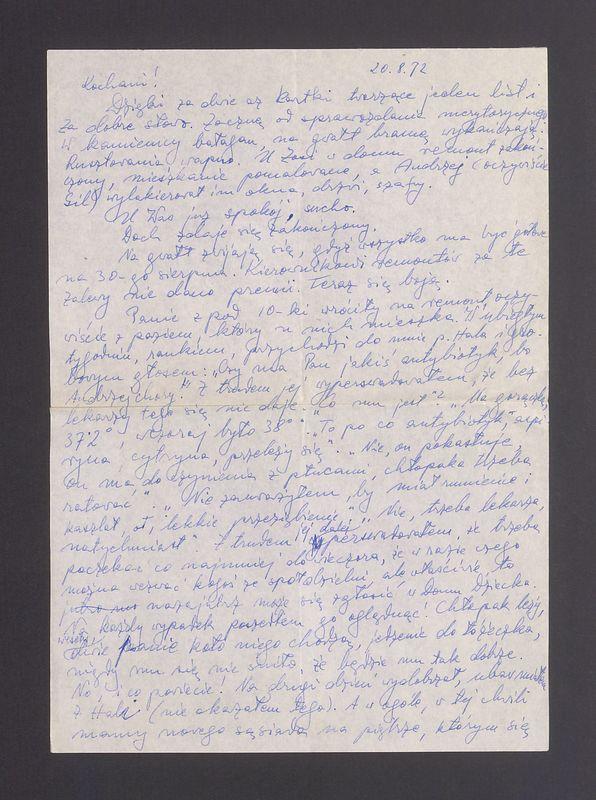 20.8.72
Kochani!
Dzięki za dwie aż kartki tworzące jeden list i
za dobre słowo. Zacznę od sprawozdania merytorycznego
W kamienicy bałagan, na gwałt bramę wykańczają.
Rusztowania, wapno. U Zosi w domu remont zakoń-
czony, mieszkanie pomalowane, a Andrzej (oczywiście
Gil) wylakierował im okna, drzwi, szafy.
U Was już spokój, sucho.
Dach zdaje się zakończony.
Na gwałt zwijają się, gdyż wszystko ma być gotowe
na 30-go sierpnia. Kierownikowi remontów za te
zalewy nie dano premii. Teraz się boją.
Panie z pod 10-ki wróciły na remont oczy-
wiście z paziem, który u nich mieszka. W ubiegłym
tygodniu, rankiem, przychodzi do mnie p. Hala i gro-
bowym głosem: "Czy ma Pan jakiś antybiotyk, bo
Andrzej chory." Z trudem jej wyperswadowałem, że bez
lekarzy tego się nie daje. "Co mu jest"? "Ma gorączkę,
37,2°, wczoraj było 38°". "To po co antybiotyk, aspi-
ryna, cytryna, przeleży się". "Nie, on pokasłuje,
on ma do czynienia z płucami, chłopaka trzeba
ratować". "Nie zauważyłem, by miał rumieńce i
kaszlał, ot, lekkie przeziębienie". "Nie, trzeba lekarza,
natychmiast". Z trudem jej dalej perswadowałem, że trzeba
poczekać co najmniej do wieczora, że w razie czego
można wezwać kogoś ze spółdzielni, ale właściwie to
jutro nazajutrz może się zgłosić w Domu Dziecka.
Na każdy wypadek poszedłem go oglądnąć. Chłopak leży,
dwie panie koło niego chodzą, jedzenie do łóżeczka,
nigdy mu się nie śniło, że będzie mu tak dobrze.
No, i co powiecie. Na drugi dzień wydobrzał,
z Hali (nie okazałem tego). A w ogóle, w tej chwili
mamy nowego sąsiada na piętrze, którym się